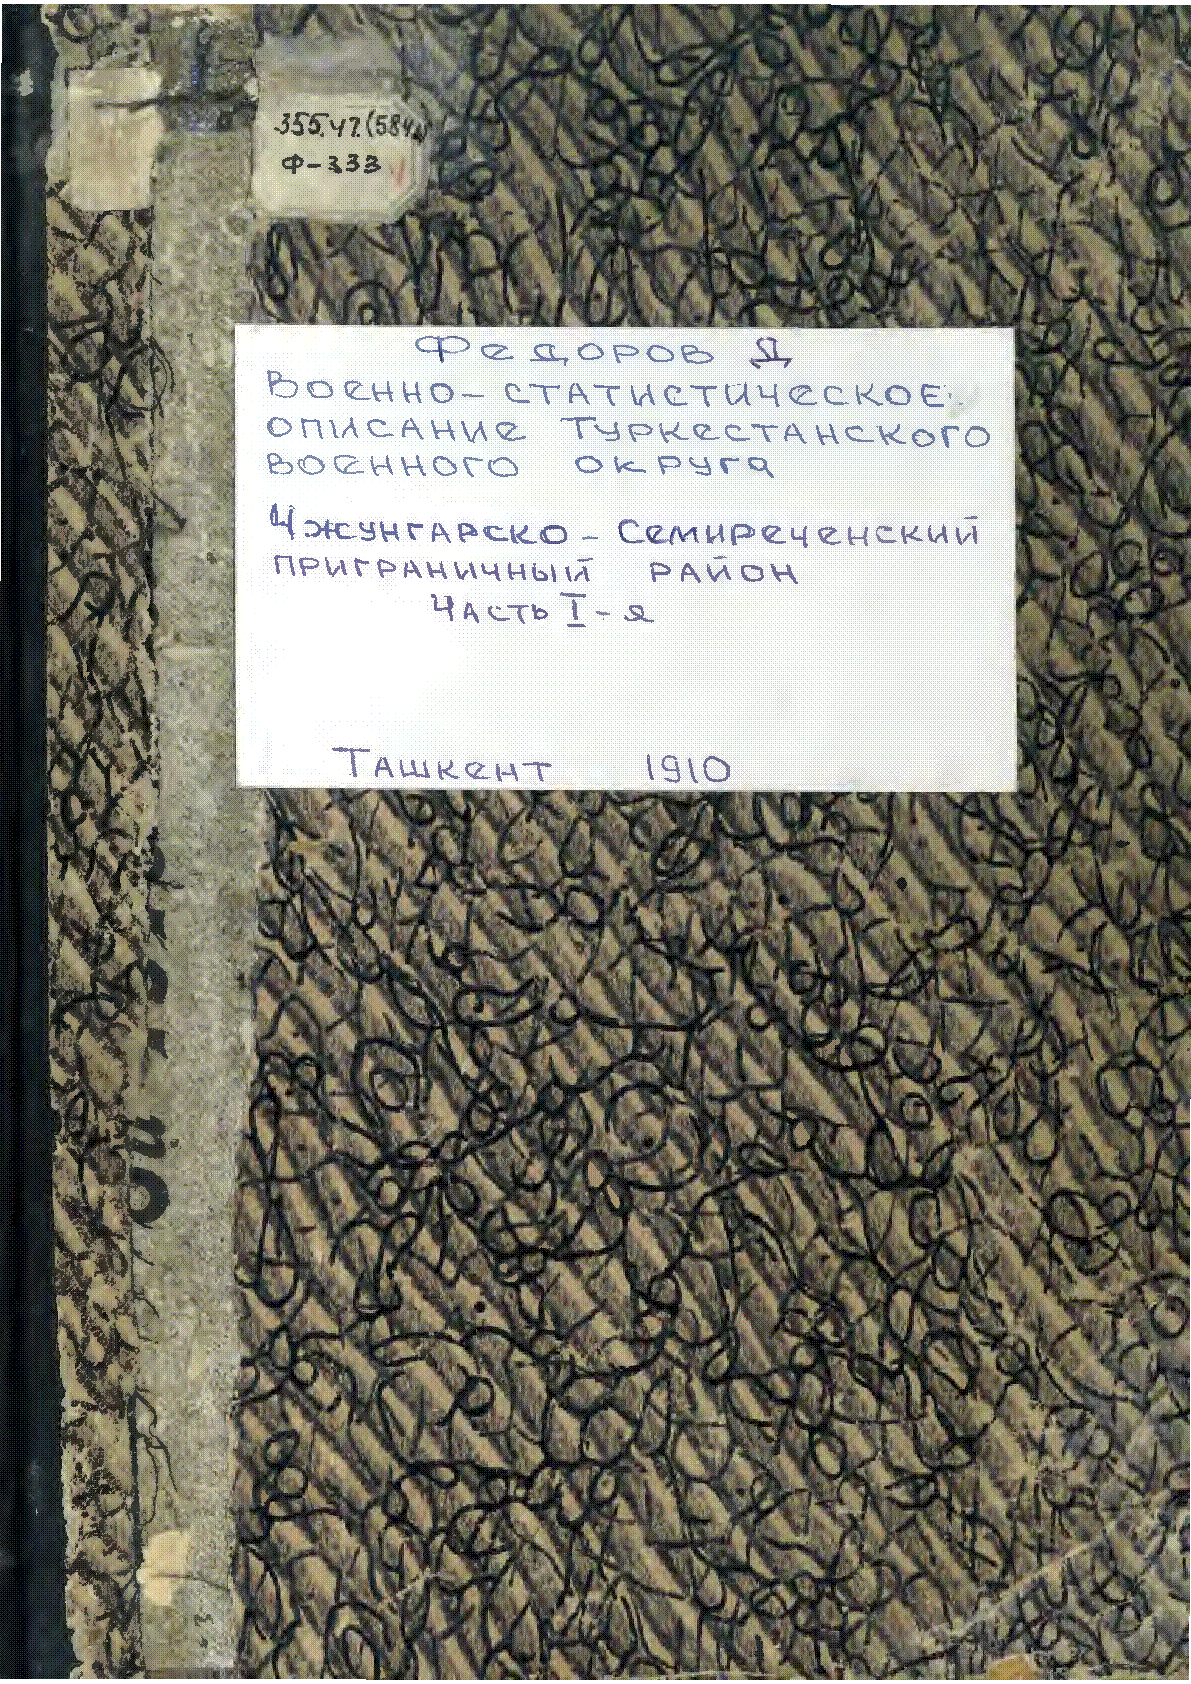 355.47.(584
Ф-333
Федоров Д
Военно-статистическое
описание Туркестанского
военного округа
Чжунгарско-Семиреченский
приграничный район
Часть I-я
Ташкент 1910